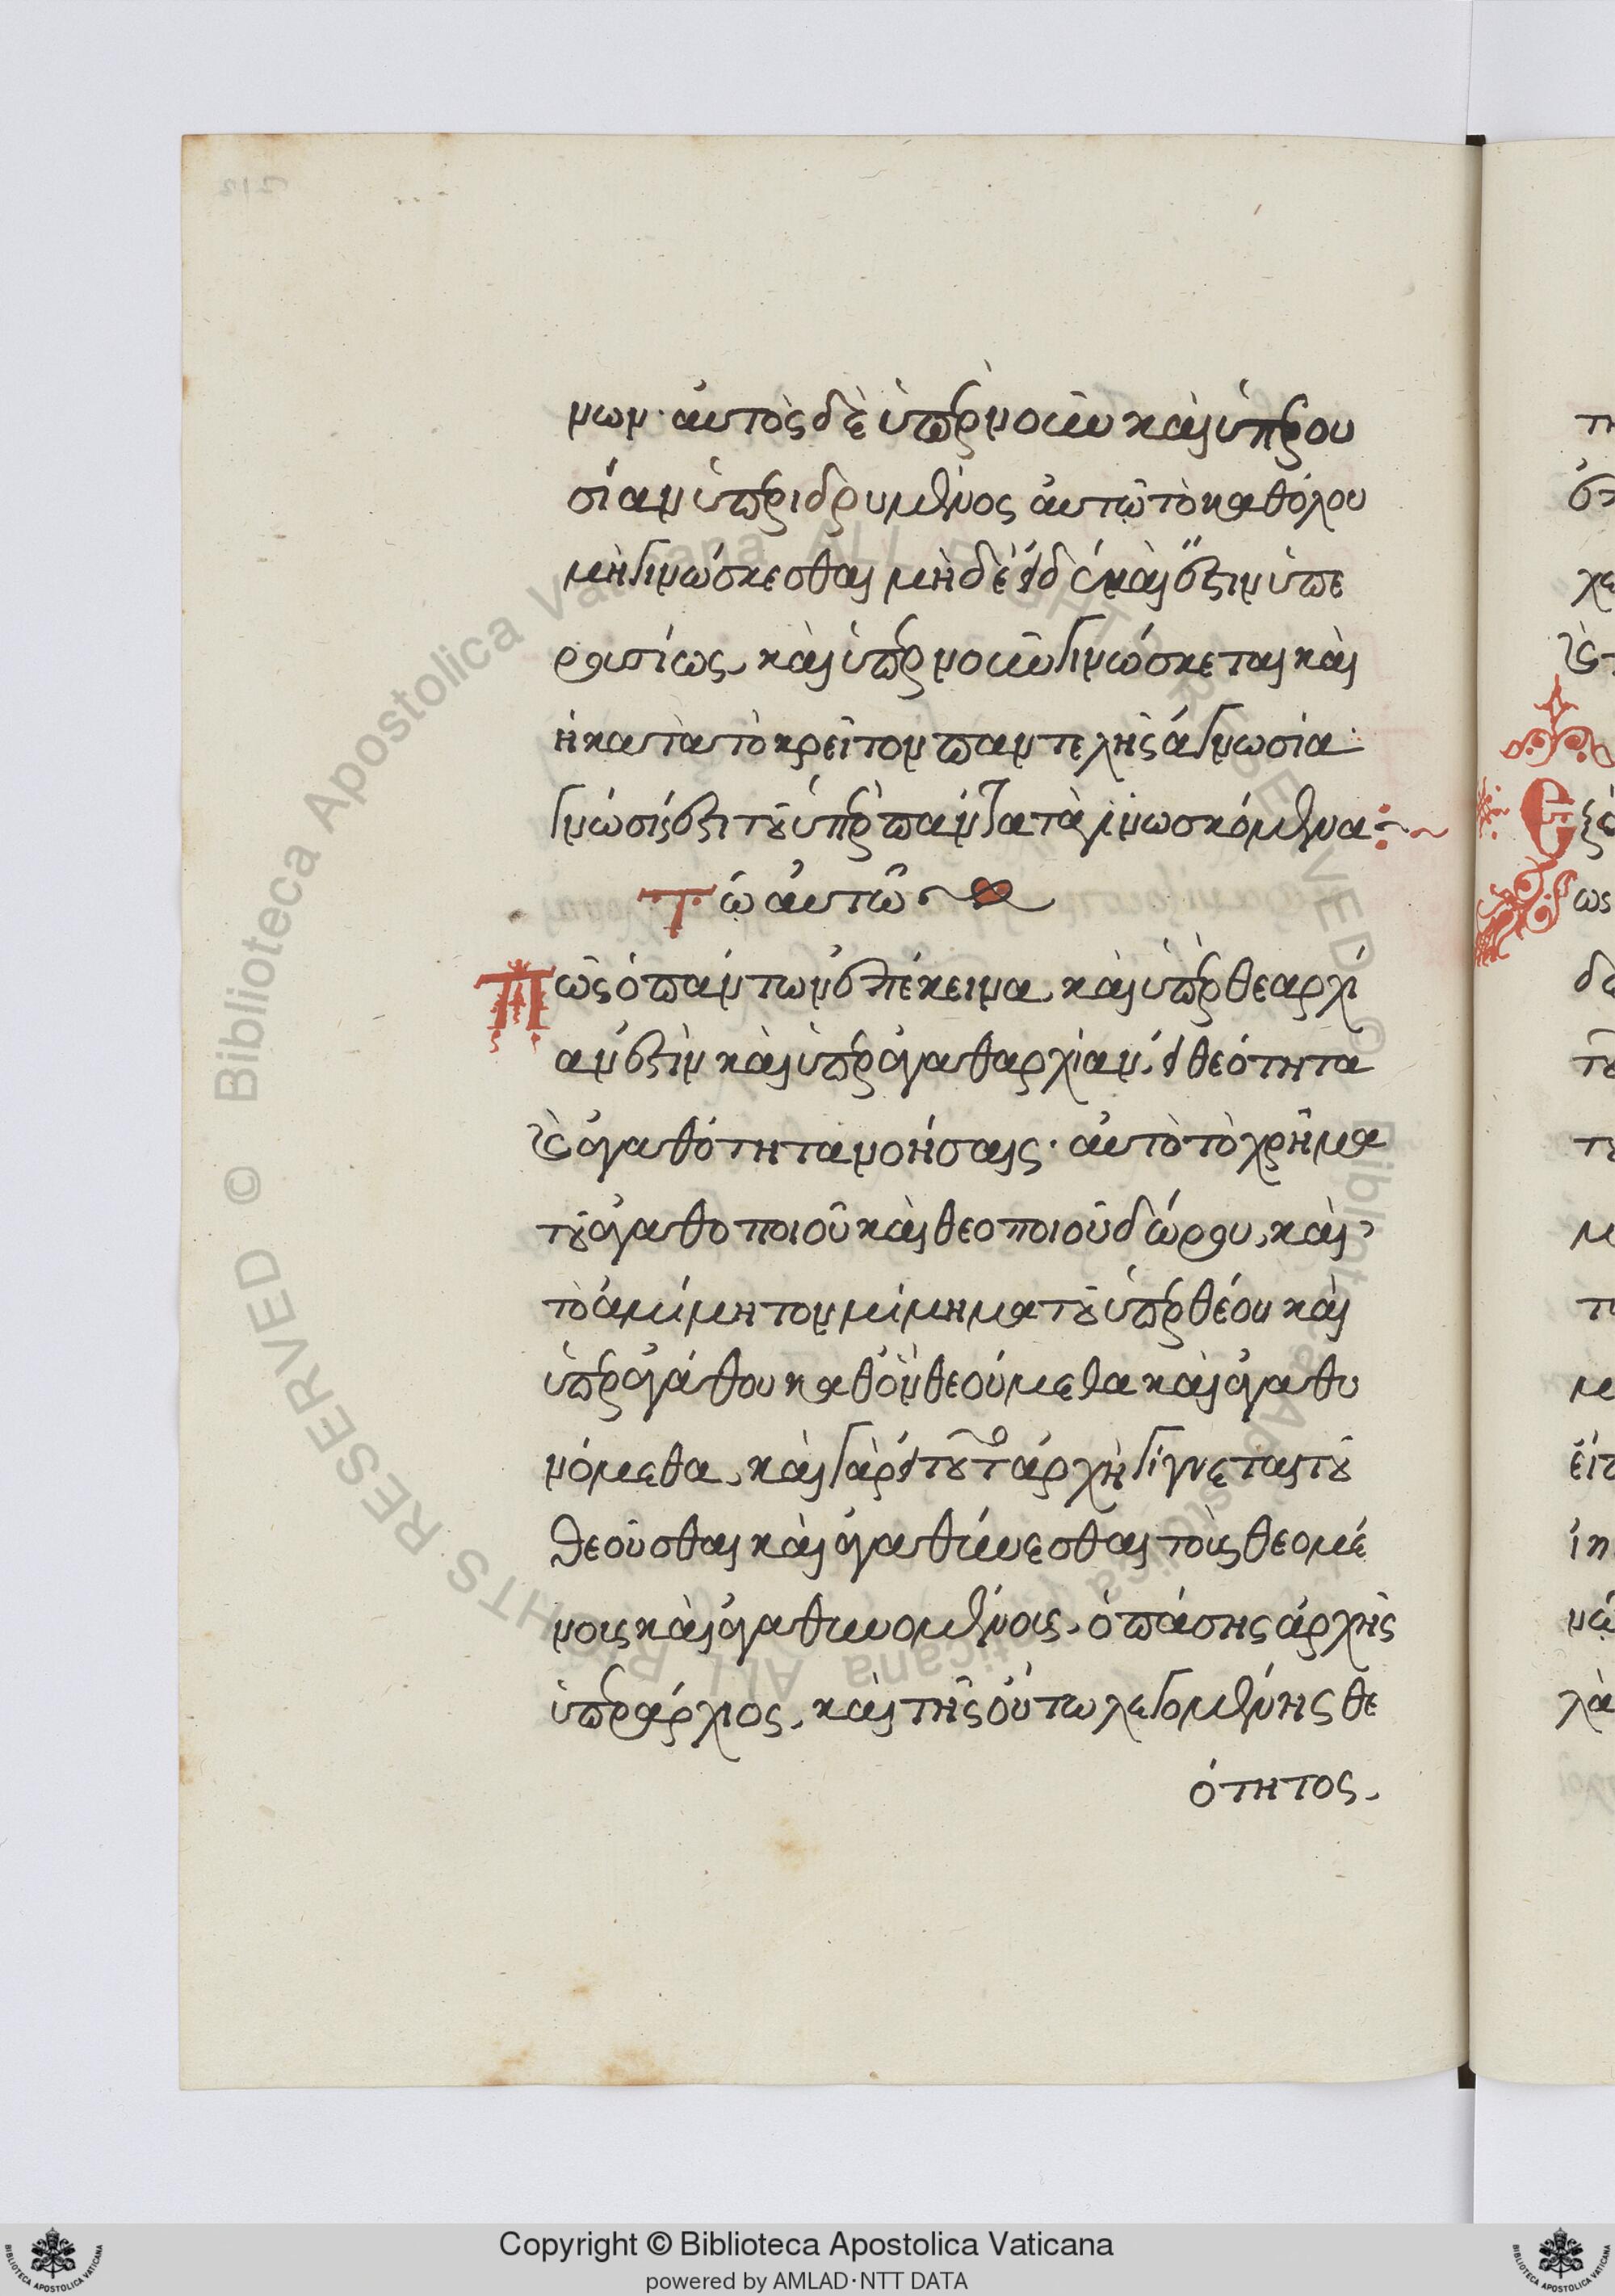 νων· αὐτὸς δὲ ὑπὲρ νοῦν καὶ ὑπὲρ οὐ
σίαν ὑπεριδρυμένος αὐτῶ τὸ καθόλου
μὴ γινώσκεσθαι μὴδὲ εἶναι καὶ ἔστιν ὑπε
ρουσίως, καὶ ὑπὲρ νοῦν γινώσκεται καὶ
ἡ κατὰ τὸ κρεῖτον παντελὴς ἀγνωσία·
γνῶσίς ἐστι τοῦ ὑπὲρ πάντα τὰ γινωσκόμενα:~
Τῶ αὐτῶ
Πῶς ὁ πάντων ἐπέκεινα, καὶ ὑπὲρ θεαρχί
αν ἐστὶν καὶ ὑπὲρ ἀγαθαρχίαν, εἰ θεότητα
καὶ ἀγαθότητα νοήσαις· αὐτὸ τὸ χρῆμα
τοῦ ἀγαθοποιοῦ καὶ θεοποιοῦ δώρου, καὶ
τὸ ἀμίμητον μίμημα τοῦ ὑπερθέου καὶ
ὑπεραγάθου καθ' ὃν θεούμεθα καὶ ἀγαθυ
νόμεθα, καὶ γὰρ εἰ τοῦτο ἀρχὴ γίγνεται τοῦ
θεοῦσθαι καὶ ἀγαθύνεσθαι τοῖς θεομέ
νοις καὶ ἀγαθυνομένοις, ὁ πάσης ἀρχῆς
ὑπεράρχιος, καὶ τῆς οὕτω λεγομένης θε
ότητος,
Copyright © Biblioteca Apostolica Vaticana
powered by AMLAD·NTT DATA